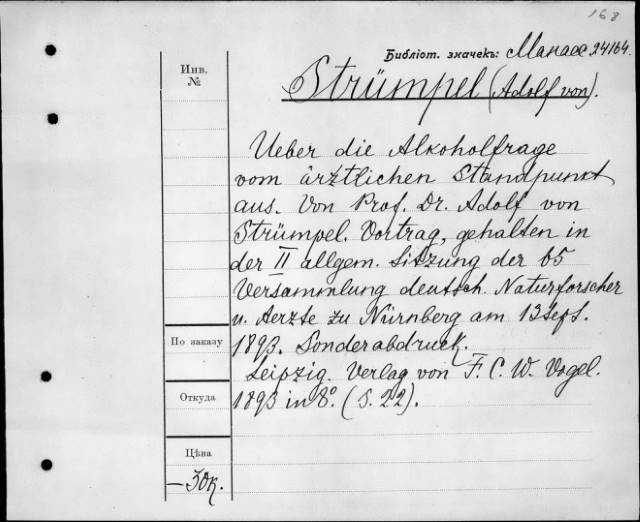 168
Библіот. значекъ: Манасс 24164.
Инв.
№
Strümpel (Adolf von).
Ueber die Alkoholfrage
vom ärztlichen Standpunkt
aus. Von Prof. Dr. Adolf von
Strümpel. Vortrag, gehalten in
der II allgem. Sitzung der 65
Versammlung deutsch. Naturforscher
u. Aerzte zu Nürnberg am 13 Sept.
По заказу
1893. Sonderabdruck.
Leipzig. Verlag von F. C. W. Vogel.
Откуда
1893 in 8°. (S. 22).
Цѣна
—30к.